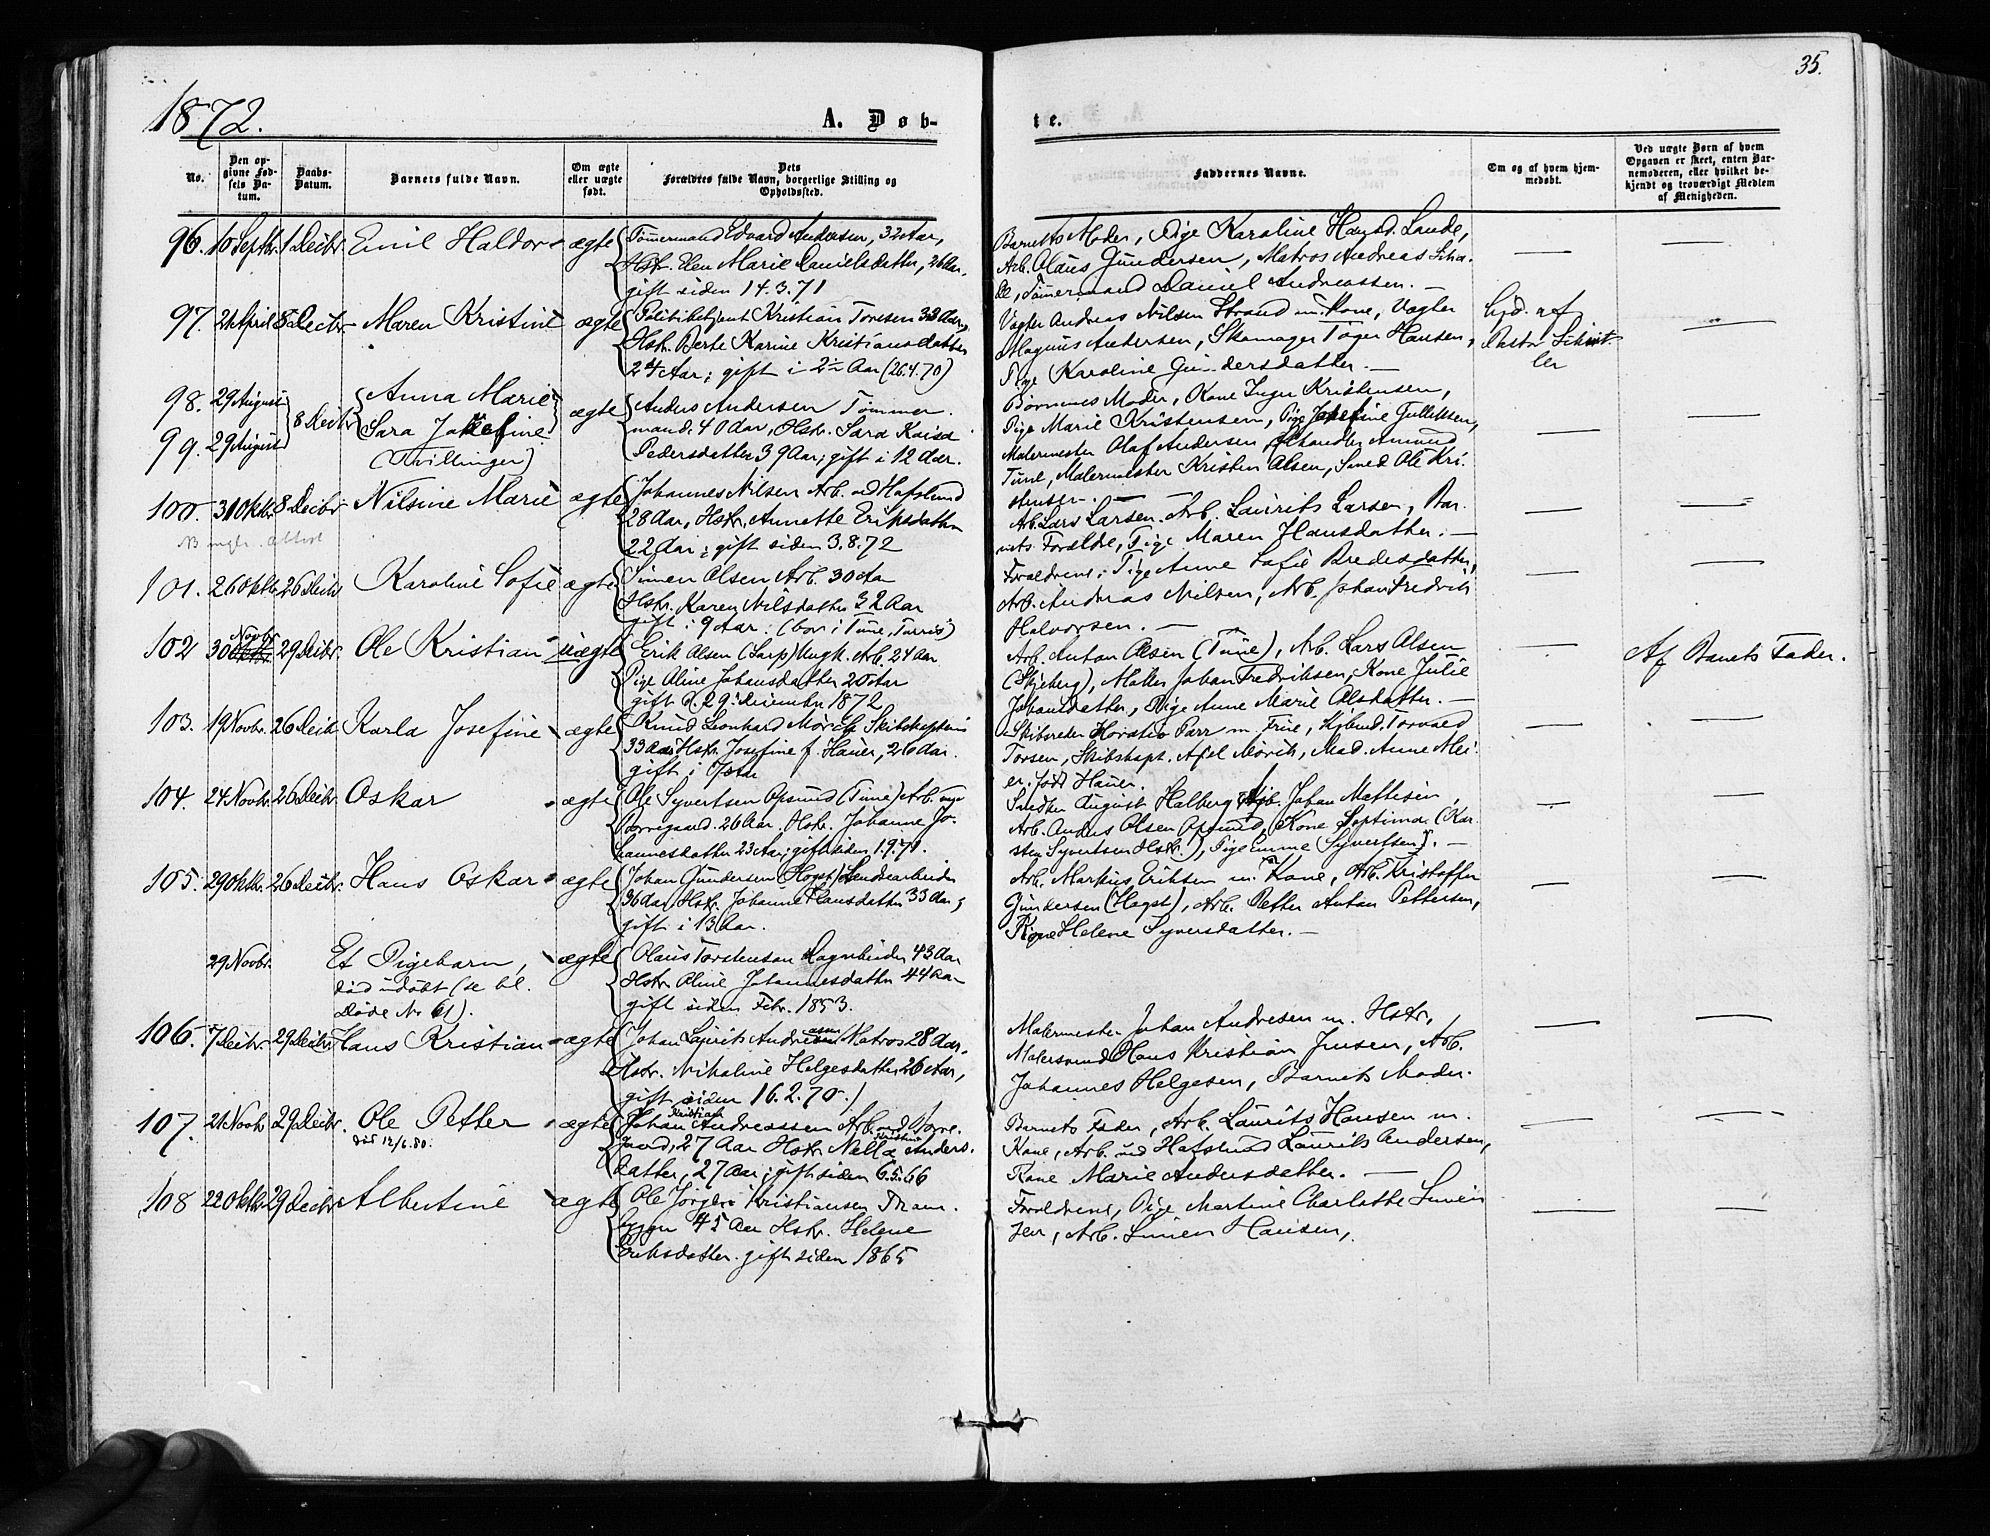 35.
1872.
A. Døb-
te.
No.
Den op-
givne Fød-
sels Da-
tum.
Daabs-
Datum.
Barnets fulde Navn.
Om ægte
eller uægte
født.
Dets
Forældres fulde Navn, borgerlige Stilling og
Opholdssted.
Faddernes Navne.
Om og af hvem hjem-
medøbt.
Ved uægte Børn af hvem
Opgaven er skeet, enten Bar-
nemoderen, eller hvilket be-
kjendt og troværdigt Medlem
af Menigheden.
96. 10 Septbr. 1 Decbr. Emil Haldor ægte
Tømermand Edvard Andersen, 32 Aar,
Hstr. Elen Marie Danielsdatter, 26 Aar.
gift siden 14.3.71
Barnets Moder, Pige Karoline Lande,
Arb. Olaus Gundersen, Matros Andreas
Tømermand Daniel Andreassen. —
97. 21 April 8 Decbr. Maren Kristine ægte
Politibetjent Kristian Toresen 33 Aar,
Hstr. Berte Karine Kristiansdatter
24 Aar; gift i 2½ Aar (26.4.70)
Vægter Andreas Nilsen Strand m. Kone, Vægter
Magnus Andersen, Skomager Tøger Hansen,
Pige Karoline Gundersdatter. —
Hjd. af
Pastor
98. 29 August 8 Decbr. Anna Marie
99. 29 August Sara Josefine ægte
(Tvillinger)
Anders Andersen Tømmer-
mand. 40 Aar, Hstr. Sara Kaisa
Pedersdatter 39 Aar; gift i 12 Aar.
Børnenes Moder, Kone Inger Kristensen,
Pige Marie Kristensen, Pige Josefine Gulliksen,
Malermester Olaf Andersen, Amund
Tune, Malermester Kristen Olsen, Smed Ole Kri-
stensen. —
100. 31 Oktbr. 8 Decbr. Nilsine Marie ægte
NB
Johannes Nilsen Arb. ved Hafslund
28 Aar, Hstr. Annette Eriksdatter
22 Aar; gift siden 3.8.72
Arb. Lars Larsen. Arb. Laurits Larsen, Bar-
nets Forældre, Pige Maren Hansdatter. —
101. 26 Oktbr. 26 Decbr. Karoline Sofie ægte
Simen Olsen Arb. 30 Aar
Hstr. Karen Nilsdatter 32 Aar
gift i 9 Aar. (bor i Tune,
Forældrene, Pige Anne Sofie Bredesdatter,
Arb. Andreas Nilsen, Arb. Johan Fredrik
Halvorsen. —
102 30 Novbr 29 Decbr. Ole Kristian uægte
Erik Olsen (Sarp) Ungk. Arb. 24 Aar
Pige Oline Johansdatter 20 Aar
gift d. 29. December 1872.
Arb. Anton Olsen (Tune), Arb. Lars Olsen
(Skjeberg), Johan Fredriksen, Kone Julie
Johansdatter, Pige Anne Marie Olsdatter. —
Af Barnets Fader.
103. 19 Novbr. 26 Decbr. Karla Josefine ægte
Knud Leonhard Mørch Skibskaptein
33 Aar Hstr. Josefine f. Hauer, 26 Aar.
gift i 7 Aar
Skibsreder Horatio Parr m. Frue, Kjbmd. Torvald
Torsen, Skibskapt. Mørch, Mad. Anne Mei-
er, født Hauer.
104. 24 Novbr. 26 Decbr. Oskar ægte
Ole Syvertsen Opsund (Tune) Arb. ved
Borregaard. 26 Aar. Hstr. Johanne Jo-
hannesdatter 23 Aar; gift siden
August Halberg, Johan Mathisen,
Arb. Anders Olsen Opsund, Kone Septima (Kar-
sten Syvertsen Hstr.), Pige Emma (Syvertsen). —
105. 29 Oktbr. 26 Decbr. Hans Oskar ægte
Johan Gundersen
36 Aar Hstr. Johanne Hansdatter 33 Aar,
gift i 13 Aar.
Arb. Markus Eriksen m. Kone, Arb. Kristoffer
Gundersen, Arb. Petter Anton Pettersen,
Kone Helene Syversdatter. —
29 Novbr. Et Pigebarn, ægte
død udøbt (se bl.
Døde Nr. 61).
Olaus Torstensen 43 Aar
Hstr. Oline Johannesdatter 44 Aar
gift siden Febr. 1853.
106. 7 Decbr. 29 Decbr. Hans Kristian ægte
Johan Laurits Andreasen Matros 28 Aar,
Hstr. Nikoline Helgesdatter 26 Aar,
gift siden 16.2.70.)
Malermester Johan Andresen m. Hstr,
Malersvend Hans Kristian Jensen, Arb.
Johannes Helgesen, Barnets Moder.
107. 21 Novbr. 29 Decbr. Ole Petter ægte
død 12/6.80.
Johan Kristian Andreassen Arb. ved Borre-
gaard, 27 Aar Hstr. Nella Kristine Anders-
datter, 27 Aar; gift siden 6.5.66
Barnets Fader, Arb. Laurits Hansen m.
Kone, Arb. ved Hafslund Laurits Andersen,
Kone Marie Andersdatter. —
108 22 Oktbr 29 Decbr Albertine ægte
Ole Jørgen Kristiansen
45 Aar Hstr. Helene
Eriksdatter. gift siden 1865
Forældrene, Pige Martine Charlotte Simen-
sen, Arb. Simen Hansen,